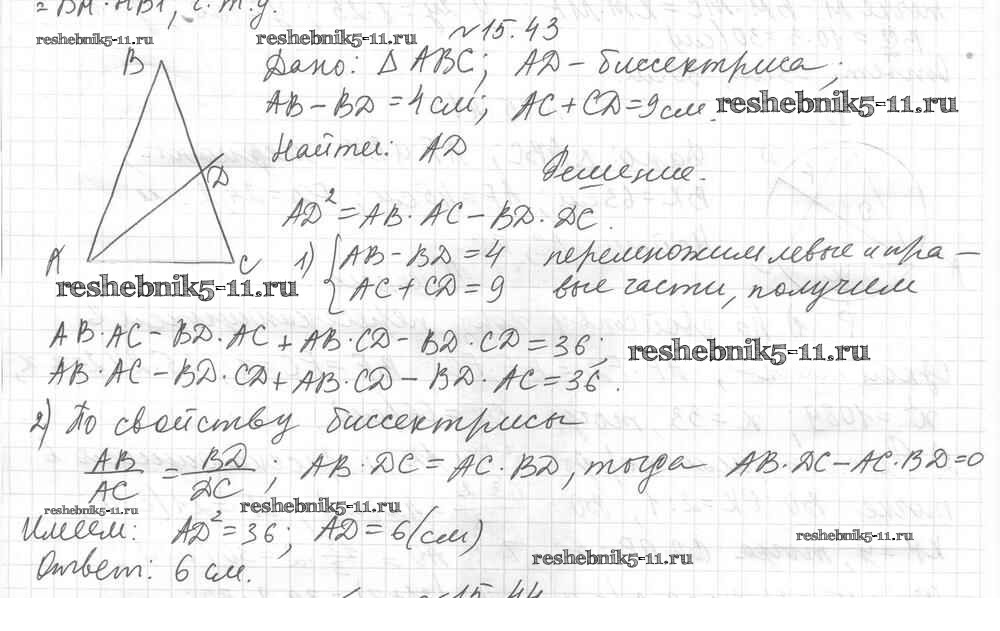 = BM · MB1, ч.т.д.
reshebnik5-11.ru
reshebnik5-11.ru
№15.43
B
Дано: Δ ABC; AD – биссектриса;
AB – BD = 4 см; AC + CD = 9 см.
reshebnik5-11.ru
Найти: AD
Решение.
D
AD² = AB · AC – BD · DC.
A
C
1) { AB – BD = 4 перемножим левые и пра –
AC + CD = 9 вые части, получим
reshebnik5-11.ru
AB · AC – BD · AC + AB · CD – BD · CD = 36;
reshebnik5-11.ru
AB · AC – BD · CD + AB · CD – BD · AC = 36.
2) По свойству биссектрисы
AB/AC = BD/DC; AB · DC = AC · BD, тогда AB · DC – AC · BD = 0
reshebnik5-11.ru
reshebnik5-11.ru
Имеем: AD² = 36; AD = 6 (см)
reshebnik5-11.ru
reshebnik5-11.ru
Ответ: 6 см.
№15.44